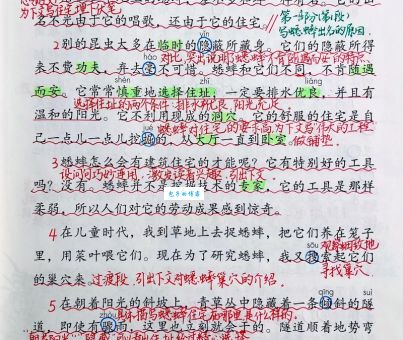 么不光由于它的唱歌,还由于它的住宅。
第一部分(第1段)
写蟋蟀出名的原因。
yǐn
2别的昆虫大多在临时的隐蔽所藏身。它们的隐蔽所得
对比,突出说明了
来不费功夫,弃去毫不可惜。蟋蟀和它们不同,不肯随遇
shèn zhǐ liáng
而安。它常常慎重地选择住址,一定要排水优良,并且有
选择住址的两个条件:排水优良 阳光充足
温和的阳光。它不利用现成的洞穴,它的舒服的住宅是自
己一点儿一点儿挖掘的,从大厅一直到卧室。
做铺垫
3蟋蟀怎么会有建筑住宅的才能呢?它有特别好的工具
设问句巧妙运用,激发读者兴趣,引出下文
吗?没有。蟋蟀并不是挖掘技术的专家,它的工具是那样
柔弱,所以人们对它的劳动成果感到惊奇。
4在儿童时代,我到草地上去捉蟋蟀,把它们养在笼子
里,用菜叶喂它们。现在为了研究蟋蟀,我又搜索起它们
sōu
寻找巢穴
的巢穴来。过渡段,引出下文对蟋蟀巢穴的介绍。
qīng suì
5在朝着阳光的斜坡上,青草丛中隐藏着一条倾斜的隧
具体描写蟋蟀住宅在哪里是什么样的。
道,即使有骤雨,这里也立刻就会干的。隧道顺着地势弯